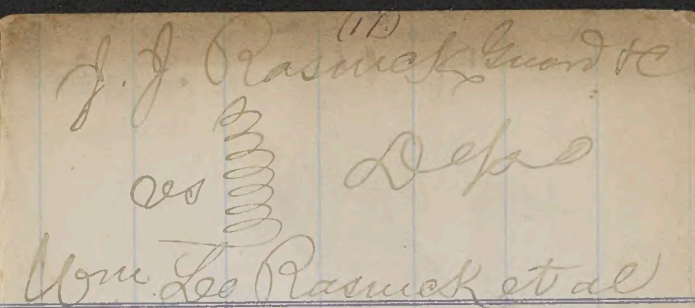 (11)
J. J. Rasnick Guard &c
vs Depo
Wm. Lee Rasnick et al